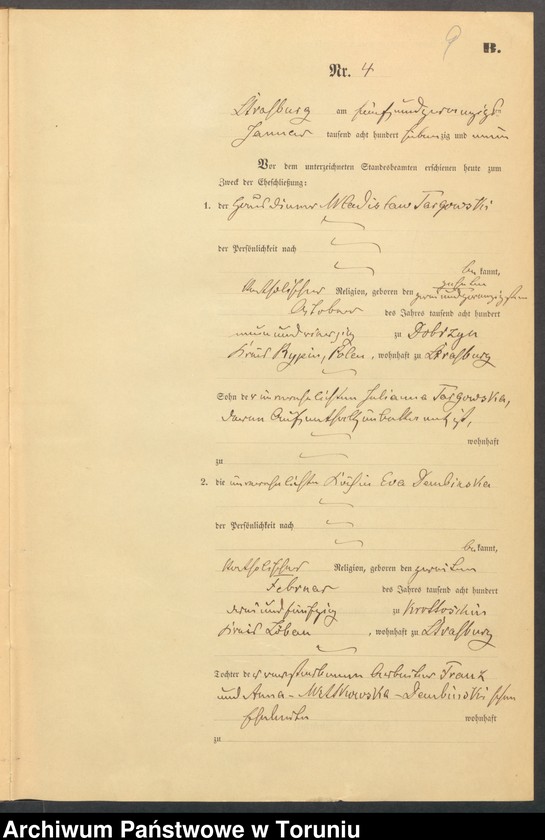 B.
Nr. 4
Straßburg am fünfundzwanzigsten
Januar tausend acht hundert siebenzig und neun
Vor dem unterzeichneten Standesbeamten erschienen heute zum
Zweck der Eheschließung:
1. der Hausdiener Wladislaw Targowski
der Persönlichkeit nach
be kannt,
katholischer Religion, geboren den zweiundzwanzigsten
Oktober des Jahres tausend acht hundert
neun und vierzig zu Dobrzyn
Kreis Rypin, Polen, wohnhaft zu Straßburg
Sohn der unverehelichten Julianna Targowska,
deren Aufenthalt unbekannt ist,
wohnhaft
zu
2. die unverehelichte Köchin Eva Dembinska
der Persönlichkeit nach
be kannt,
katholischer Religion, geboren den zweiten
Februar des Jahres tausend acht hundert
drei und fünfzig zu Krottoschin
Kreis Löbau, wohnhaft zu Straßburg
Tochter der verstorbenen Arbeiter Franz
und Anna - Dembinski schen
Eheleute wohnhaft
zu
Archiwum Państwowe w Toruniu